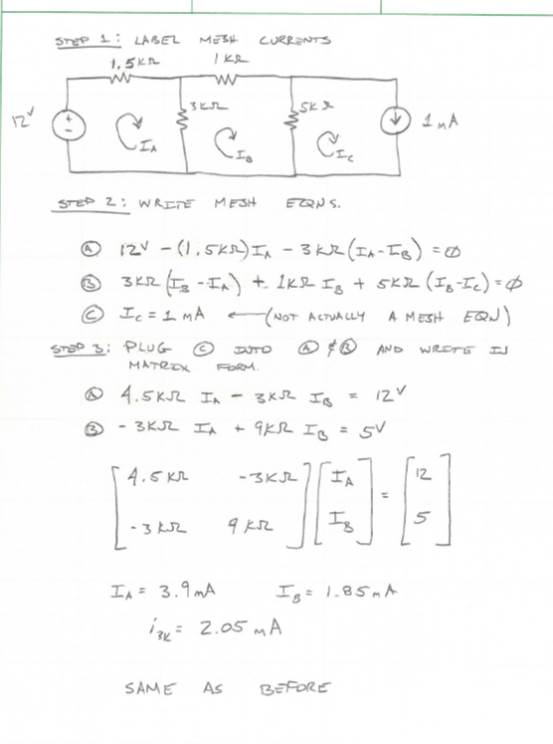 STEP 1: LABEL MESH CURRENTS
1.5KΩ 1KΩ
12V + - IA 3KΩ IB 5KΩ IC 1 mA
STEP 2: WRITE MESH EQNS.
Ⓐ 12V - (1.5KΩ)IA - 3KΩ(IA-IB) = Ø
Ⓑ 3KΩ(IB-IA) + 1KΩ IB + 5KΩ (IB-IC) = Ø
Ⓒ IC = 1 mA ← (NOT ACTUALLY A MESH EQN)
STEP 3: PLUG Ⓒ INTO Ⓐ & Ⓑ AND WRITE IN
MATRIX FORM.
Ⓐ 4.5KΩ IA - 3KΩ IB = 12V
Ⓑ -3KΩ IA + 9KΩ IB = 5V
[4.5KΩ -3KΩ] [IA] = [12]
[-3KΩ 9KΩ] [IB] [5]
IA = 3.9mA IB = 1.85mA
i3K = 2.05 mA
SAME AS BEFORE